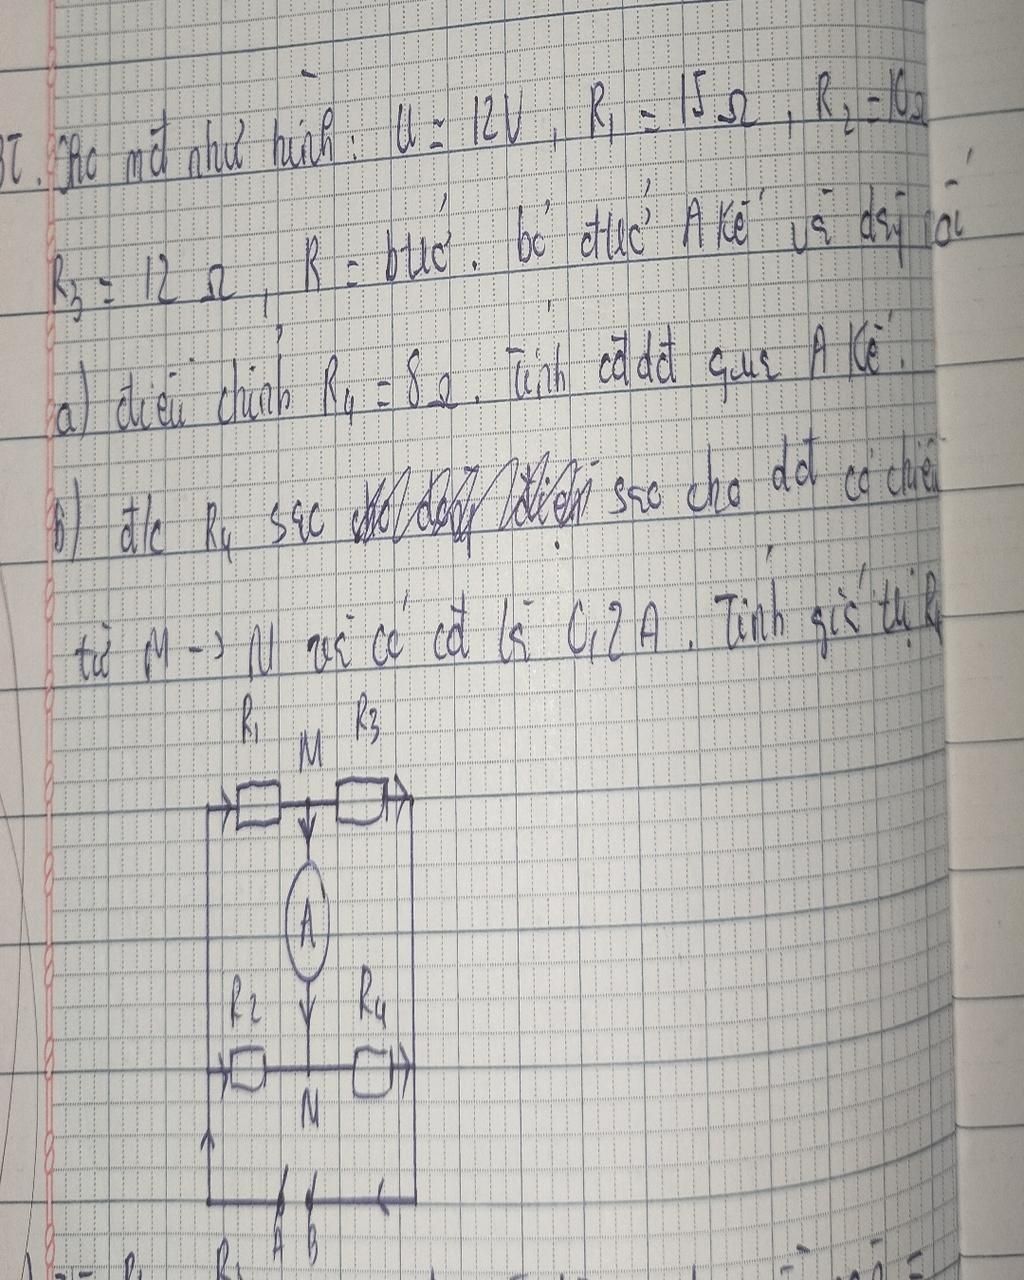 BT. Cho mđ như hình: U = 12V, R₁ = 15 Ω, R₂ = 10 Ω
R₃ = 12 Ω, R = . bỏ A Kế và dây
a) điều chỉnh R₄ = 8 Ω. Tính cđdđ qua A Kế.
b) đ/c R₄ sao sao cho dđ có chiều
từ M -> N và có cđ là 0,2 A. Tính giá trị R₄
R₁ M R₃
A
R₂ R₄
N
A B